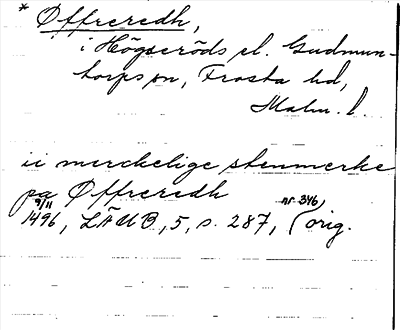 * Øffreredh,
i Högseröds el. Gudmun-
torps sn, Frosta hd,
Malm. l.
ii merckelige stenmerke
pa Øffreredh
9/11 1496, LÄUB, 5, s. 287, nr 346, (orig.